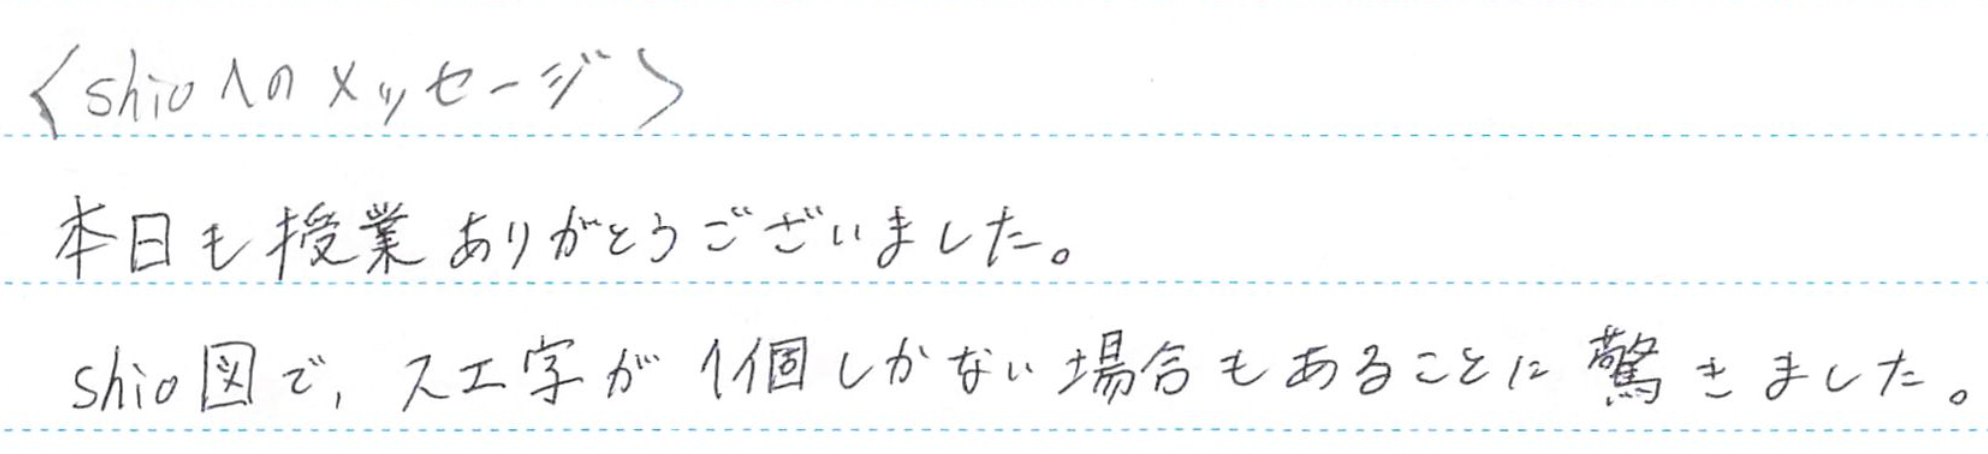 〈shioへのメッセージ〉
本日も授業ありがとうございました。
shio図で, スエ字が1個しかない場合もあることに驚きました。